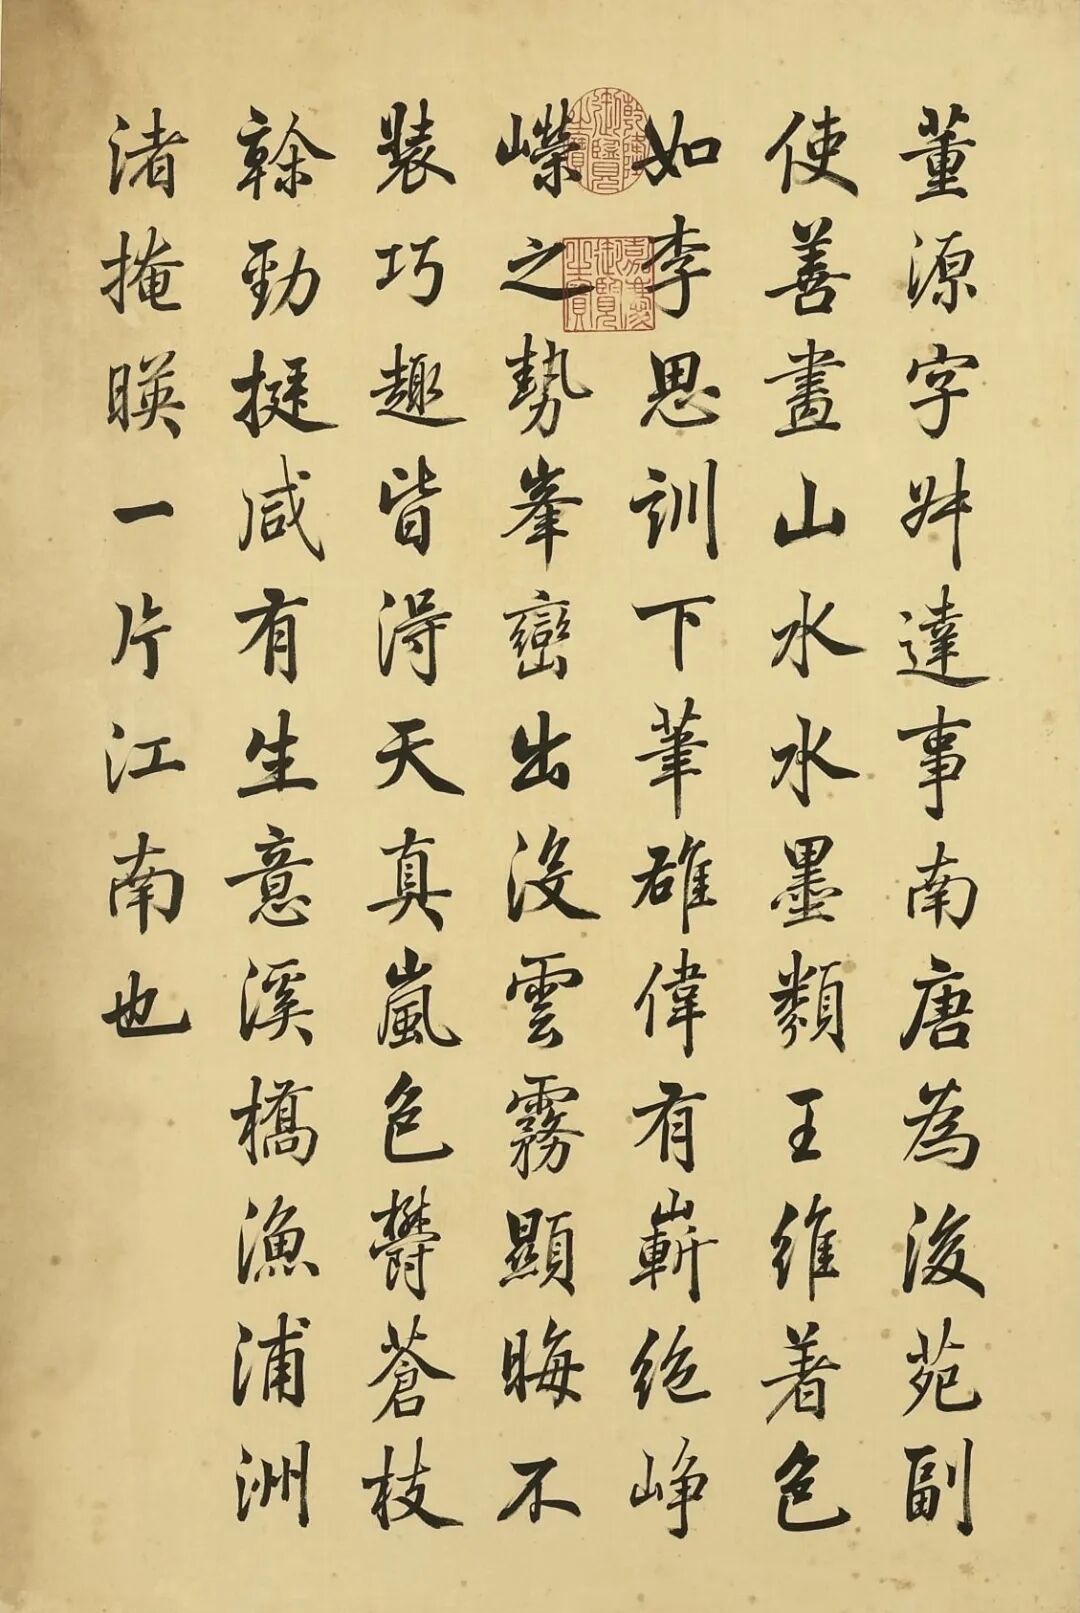 董源字叔達事南唐為後苑副
使善畫山水水墨類王維着色
如李思訓下筆雄偉有嶄絕崢
嶸之勢峯巒出沒雲霧顯晦不
裝巧趣皆得天真嵐色鬱蒼枝
榦勁挺咸有生意溪橋漁浦洲
渚掩暎一片江南也
乾隆御覽之寶
嘉慶御覽之寶